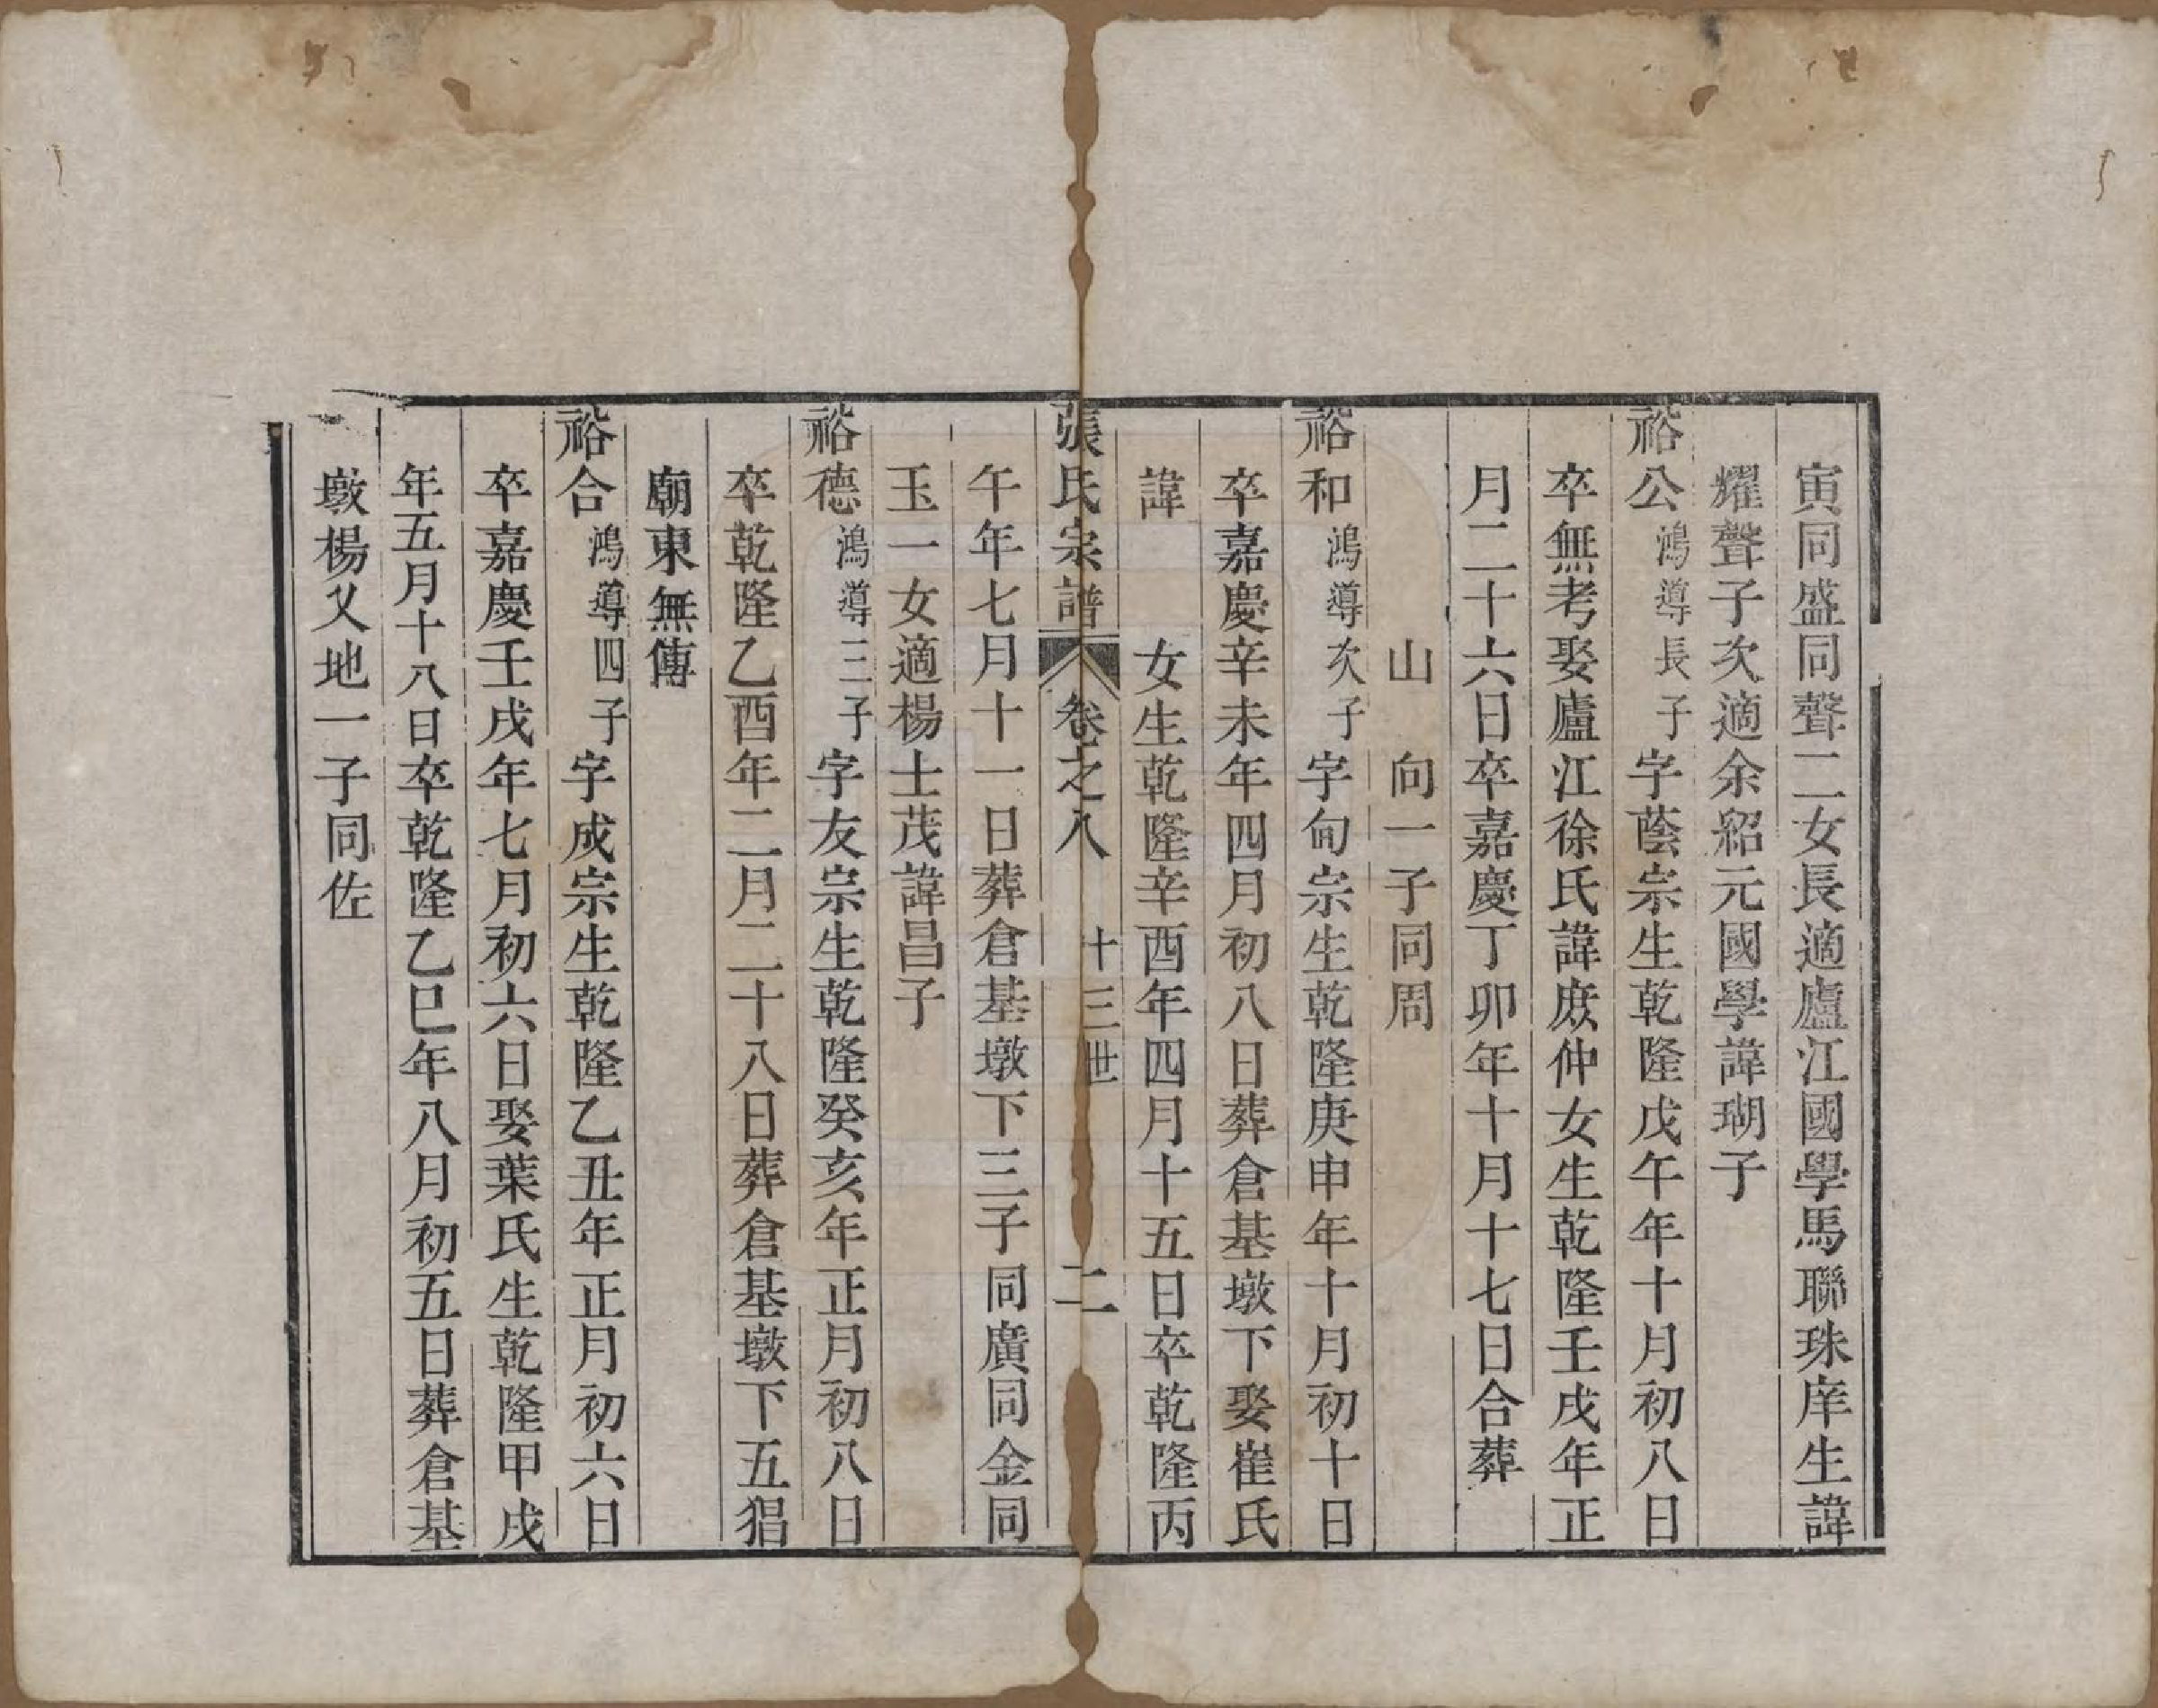 寅同盛同聲二女長適廬江國學馬聯珠庠生諱
耀聲子次適余紹元國學諱瑚子
裕公鴻導長子字蔭宗生乾隆戊午年十月初八日
卒無考娶廬江徐氏諱庶仲女生乾隆壬戌年正
月二十六日卒嘉慶丁卯年十月十七日合葬
山 向一子同周
裕和鴻導次子字甸宗生乾隆庚申年十月初十日
卒嘉慶辛未年四月初八日葬倉基墩下娶崔氏
諱 女生乾隆辛酉年四月十五日卒乾隆丙
張氏宗譜 卷之八 十三世 二
午年七月十一日葬倉基墩下三子同廣同金同
玉一女適楊士茂諱昌子
裕德鴻導三子字友宗生乾隆癸亥年正月初八日
卒乾隆乙酉年二月二十八日葬倉基墩下五猖
廟東無傳
裕合鴻導四子字成宗生乾隆乙丑年正月初六日
卒嘉慶壬戌年七月初六日娶葉氏生乾隆甲戌
年五月十八日卒乾隆乙巳年八月初五日葬倉基
墩楊乂地一子同佐